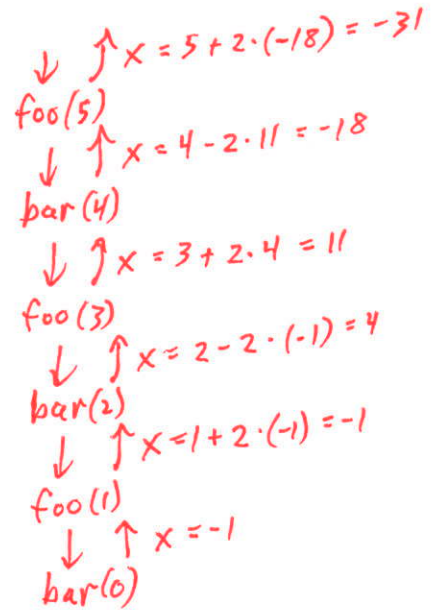 ↓ ↑ x = 5 + 2·(-18) = -31
foo(5)
↓ ↑ x = 4 - 2·11 = -18
bar(4)
↓ ↑ x = 3 + 2·4 = 11
foo(3)
↓ ↑ x = 2 - 2·(-1) = 4
bar(2)
↓ ↑ x = 1 + 2·(-1) = -1
foo(1)
↓ ↑ x = -1
bar(0)